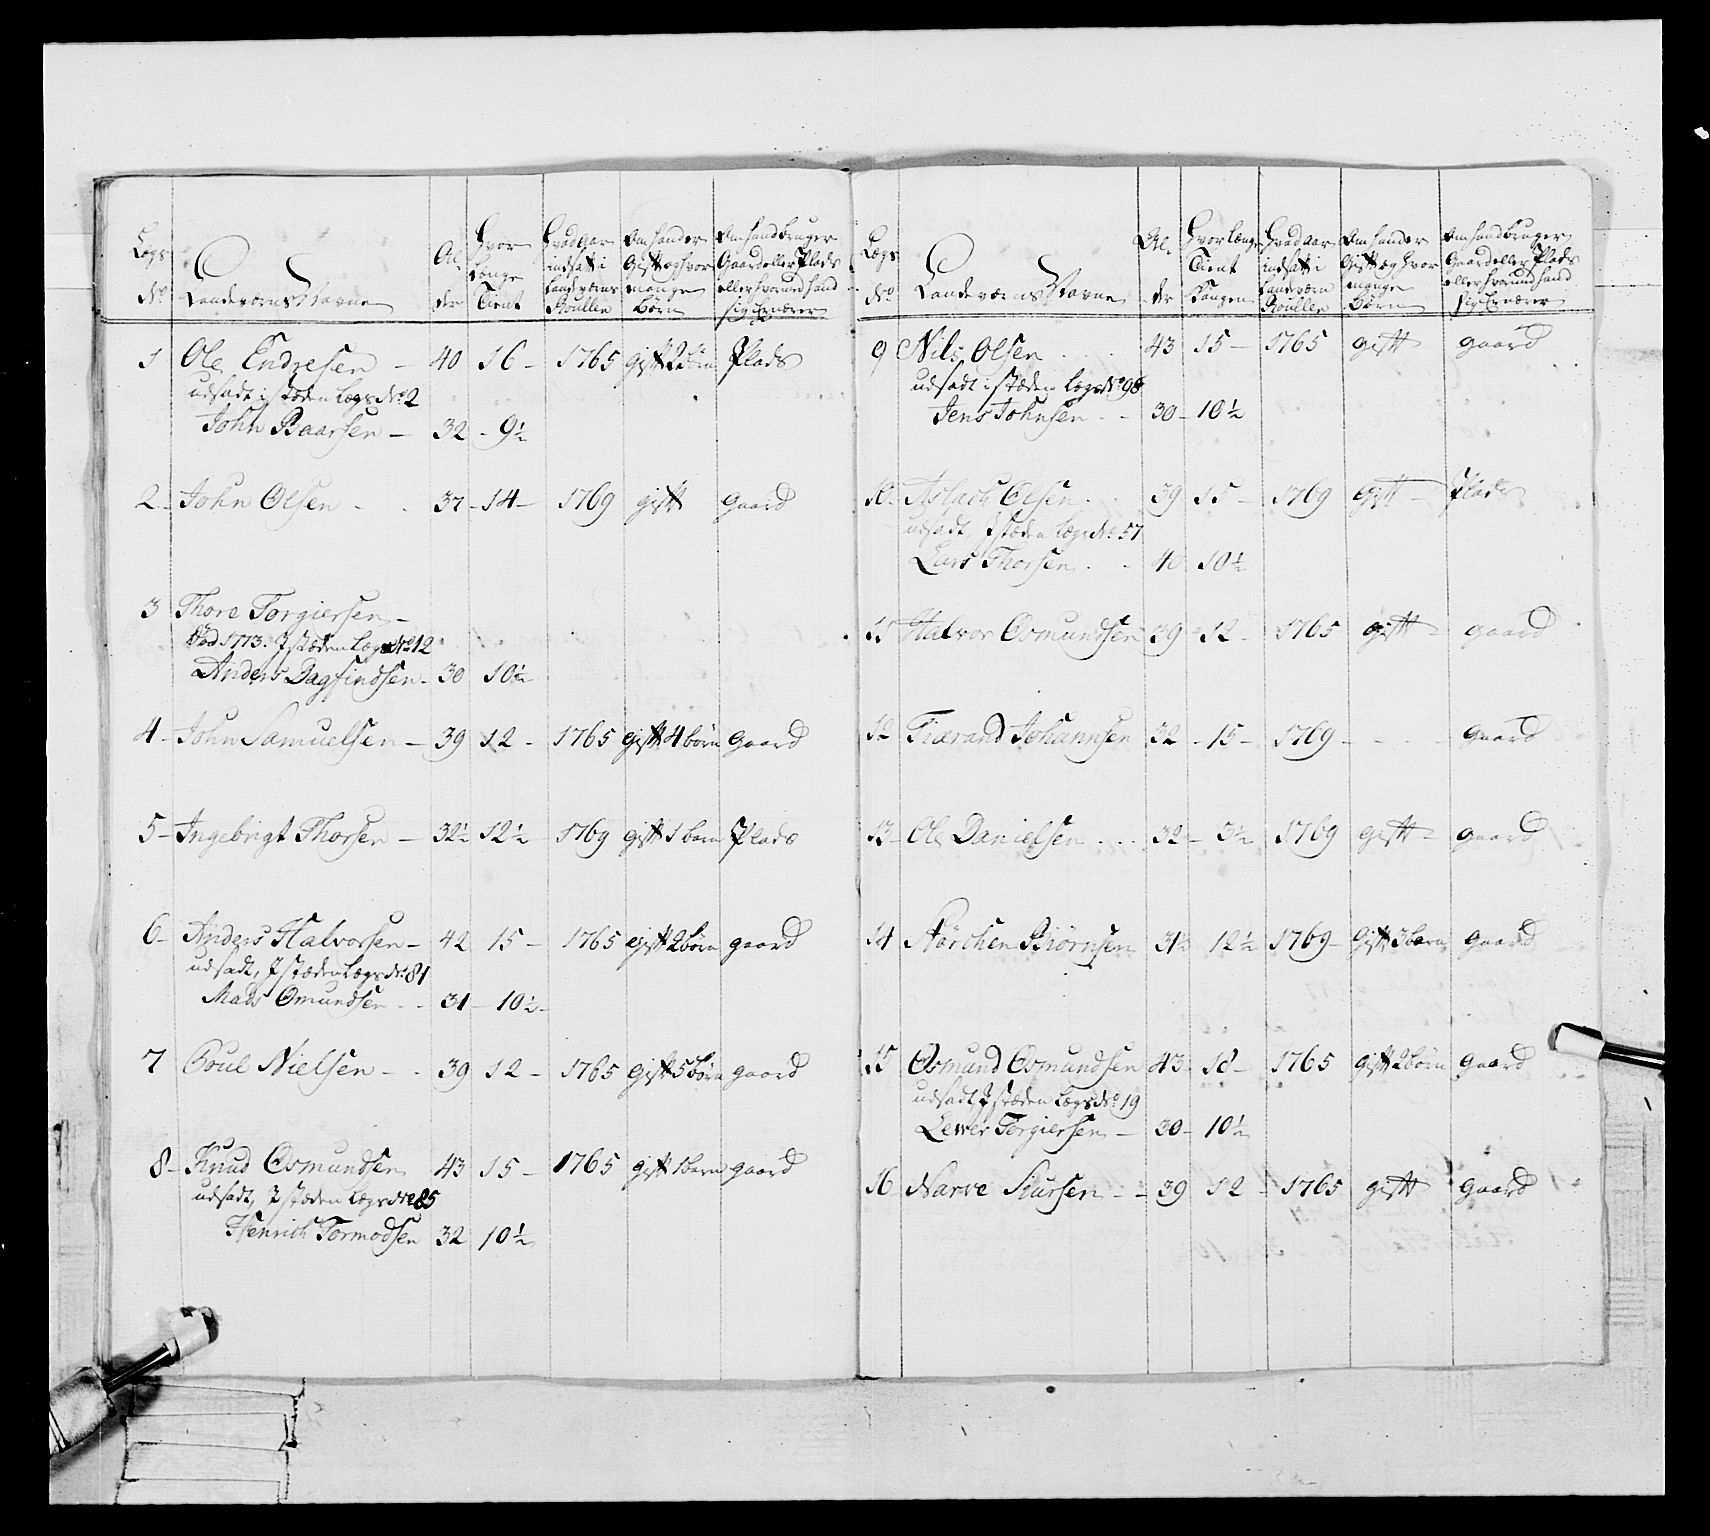 Legs No
Landeværns Navne
Al der
Hvor længe Tient
Hvad aar indsatt i Landeværns Roullen
Om hand er Gift og hvor mange Børn
Om hand bruger Gaard eller Plads eller hvormed hand sig Ernærer
1 Ole Endresen — 40 16 – 1765 gift 2 børn Plads
udsadt i stæden Legs No 2
John Baarsen — 32 - 9½
2 John Olsen 37 - 14 - 1769 gift Gaard
3 Thore Torgiersen —
Død 1773. I stæden Legs No 12
Anders Dagfindsen 30 10½
4 John Samuelsen — 39 12 - 1765 gift 4 børn Gaard
5 Ingebrigt Thorsen — 32½ 12½ 1769 gift 1 barn Plads
6 Anders Halvorsen — 42 15 – 1765 gift 2 børn gaard
udsadt, I stæden Legs No 81
Mads Omundsen 31 – 10½
7 Poul Nielsen 39 12 – 1765 Gift 5 børn gaard
8 Knud Osmundsen 43 15 – 1765 gift 1 barn gaard
udsadt, I stæden Legs No 85
Henrich Tormodsen 32 10½
Legs No
Landeværns Navne
Al der
Hvor længe Tient Kongen
Hvad aar indsatt i Landeværn Roullen
Om hand er Gift og hvor mange Børn
Om hand Bruger Gaard eller Plads eller hvormed hand sig Ernærer
9 Nils Olsen 43 15 – 1765 gift gaard
udsadt i stæden Legs No 98
Jens Johnsen 30 – 10½
10 Aslach Olsen 39 15 – 1769 Gift – Plads
udsadt, I stæden Legs No 57
Lars Thorsen 40 10½
11 Halvor Osmundsen 39 – 12 – 1765 gift – gaard
12 Tiærand Johannsen 32 – 15 – 1769 – Gaard
13 Ole Danielsen 32 – 3½ 1769 gift – gaard
14 Størchen Biørnsen 31½ 12½ 1769 – Gift 3 børn Gaard
15 Osmund Osmundsen 43 18 – 1765 gift 2 børn gaard
udsadt I stæden Legs No 19
Lewer Torgiersen — 30 – 10½
16 Narve Siursen – – 39 12 – 1765 gift gaard